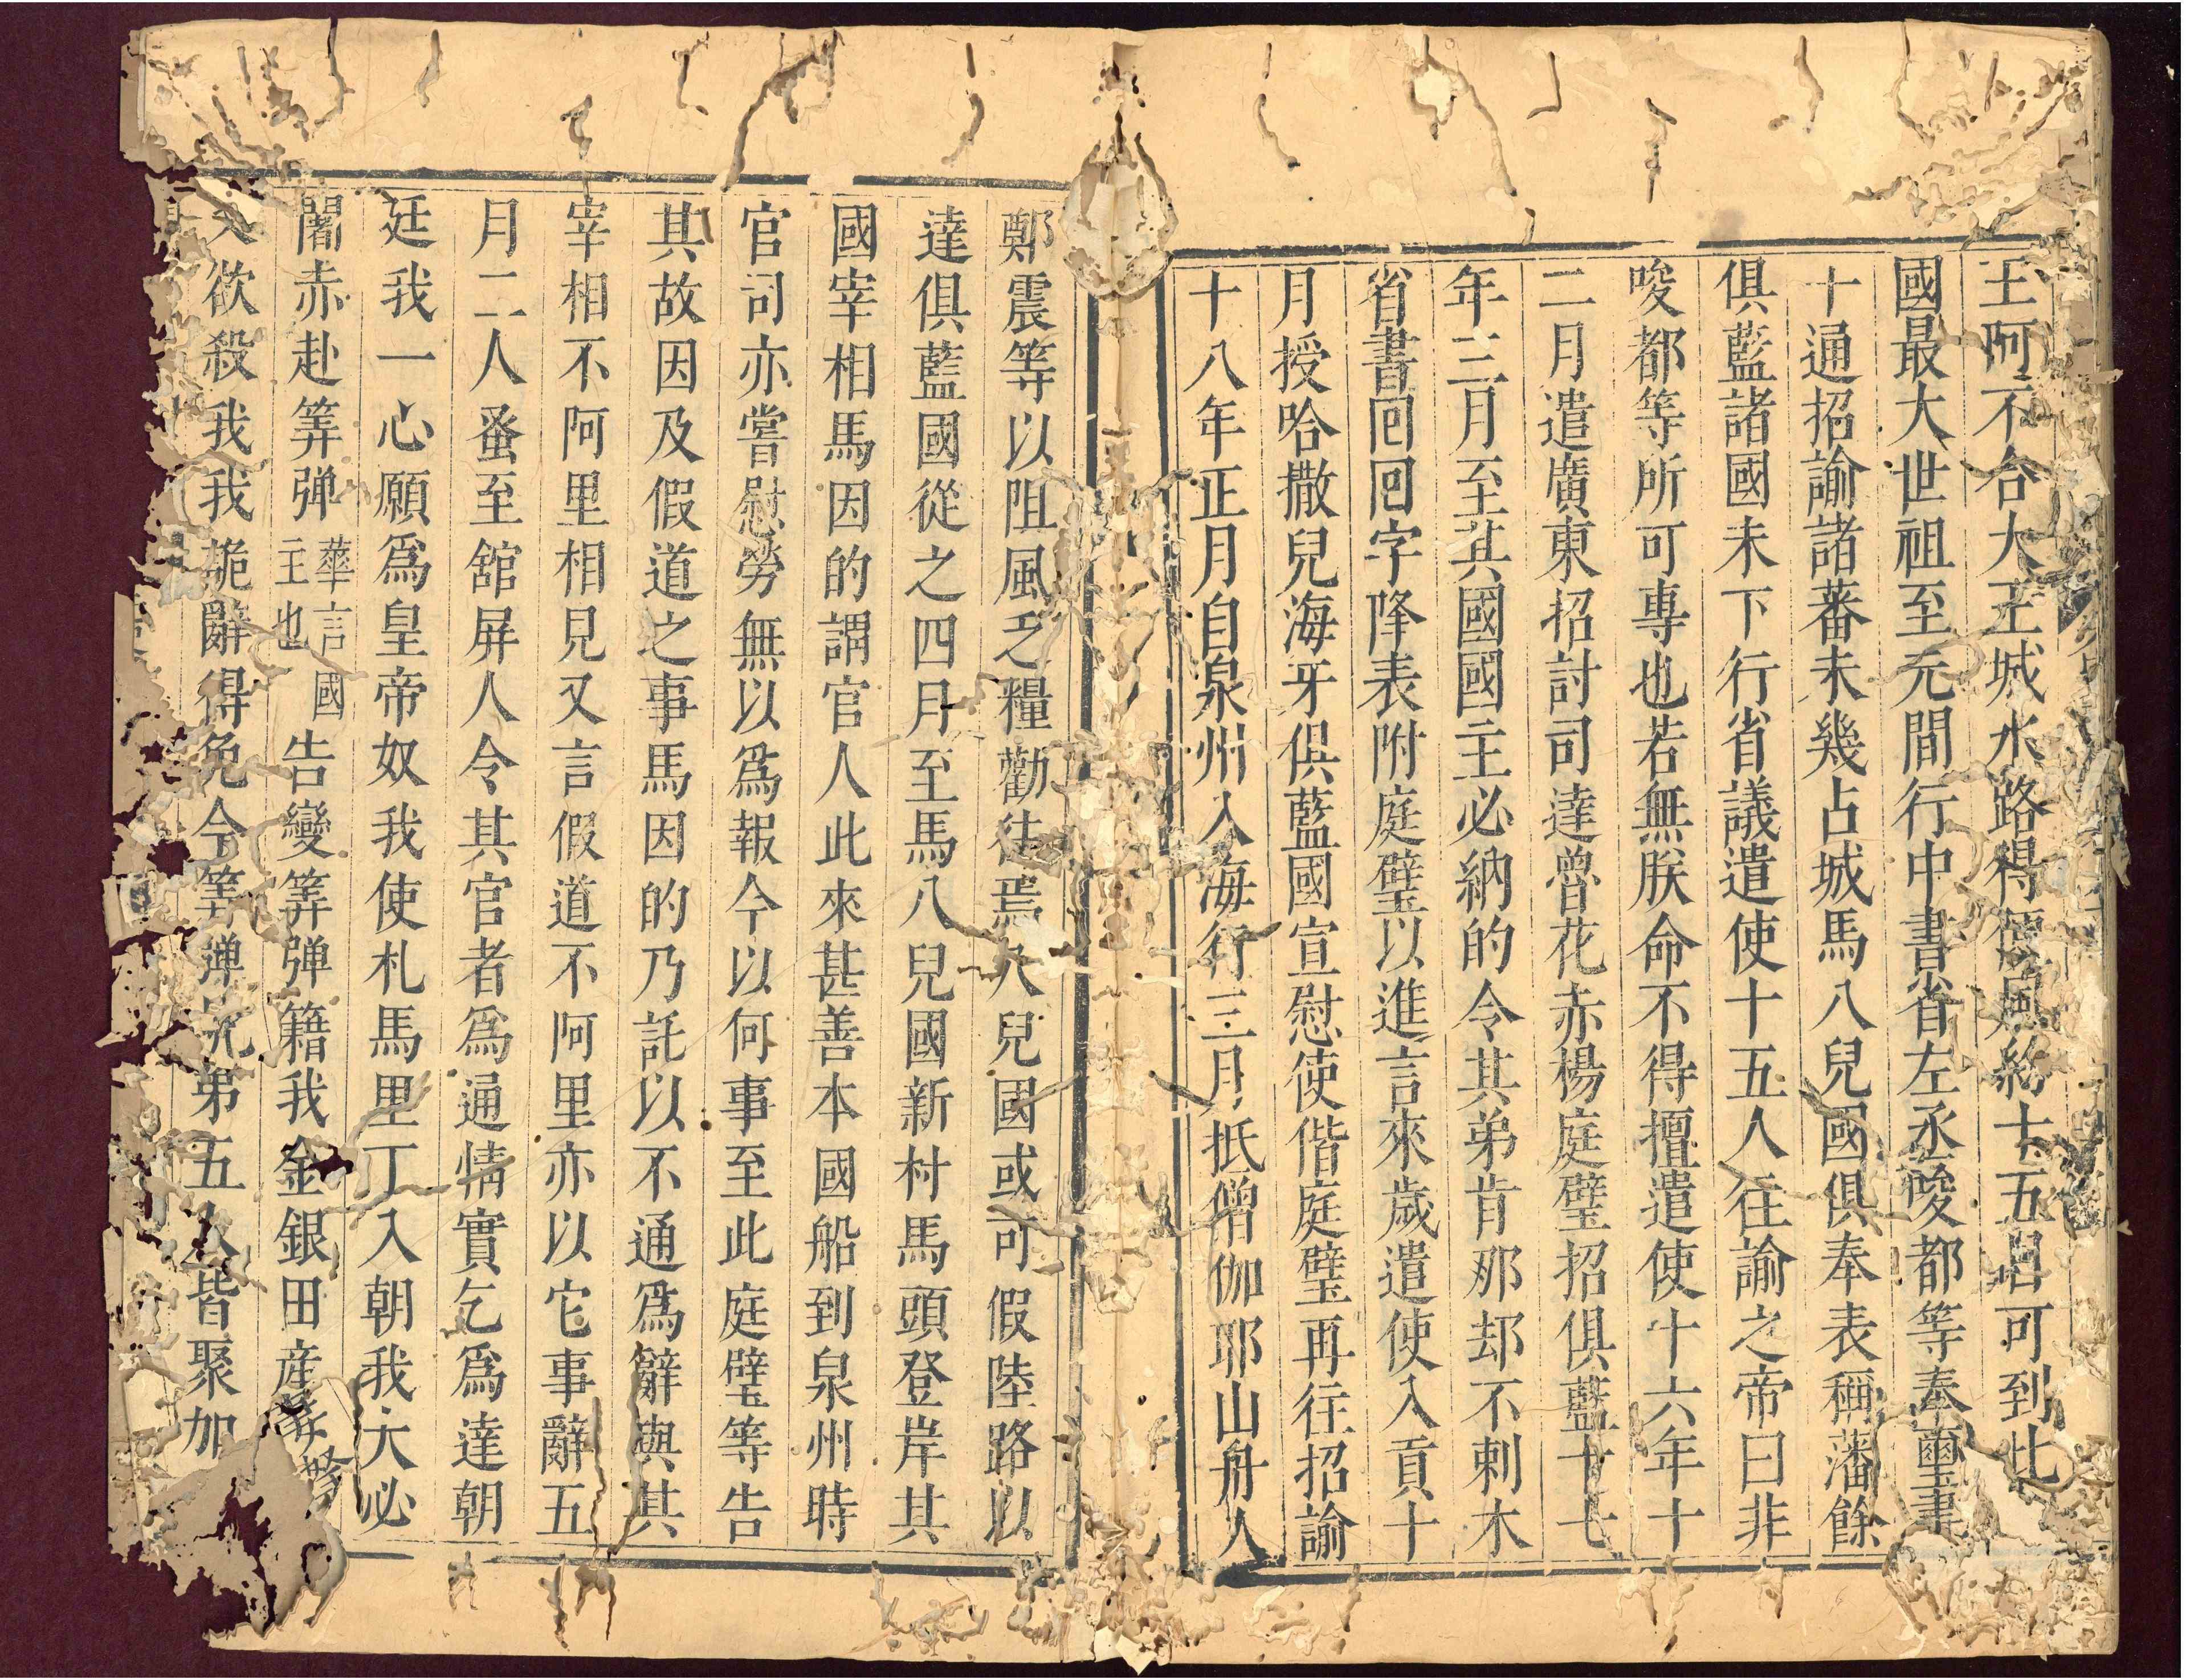 王阿不合大王城水路得便風約十五日可到比
國最大世祖至元間行中書省左丞唆都等奉璽書
十通招諭諸蕃未幾占城馬八兒國俱奉表稱藩餘
俱藍諸國未下行省議遣使十五人往諭之帝曰非
唆都等所可專也若無朕命不得擅遣使十六年十
二月遣廣東招討司達魯花赤楊庭璧招俱藍十七
年三月至其國國主必納的令其弟肯那却不剌木
省書回回字降表附庭璧以進言來歲遣使入貢十
月授哈撒兒海牙俱藍國宣慰使偕庭璧再往招諭
十八年正月自泉州入海行三月抵僧伽耶山舟人
鄭震等以阻風乏糧勸往馬八兒國或可假陸路以
達俱藍國從之四月至馬八兒國新村馬頭登岸其
國宰相馬因的謂官人此來甚善本國船到泉州時
官司亦嘗慰勞無以爲報今以何事至此庭璧等告
其故因及假道之事馬因的乃託以不通爲辭與其
宰相不阿里相見又言假道不阿里亦以它事辭五
月二人蚤至舘屏人令其官者爲通情實乞爲達朝
廷我一心願爲皇帝奴我使札馬里丁入朝我大必
闍赤赴筭彈華言國主也告變筭彈籍我金銀田産妻孥
又欲殺我我詭辭得免今筭彈兄弟五人皆聚加